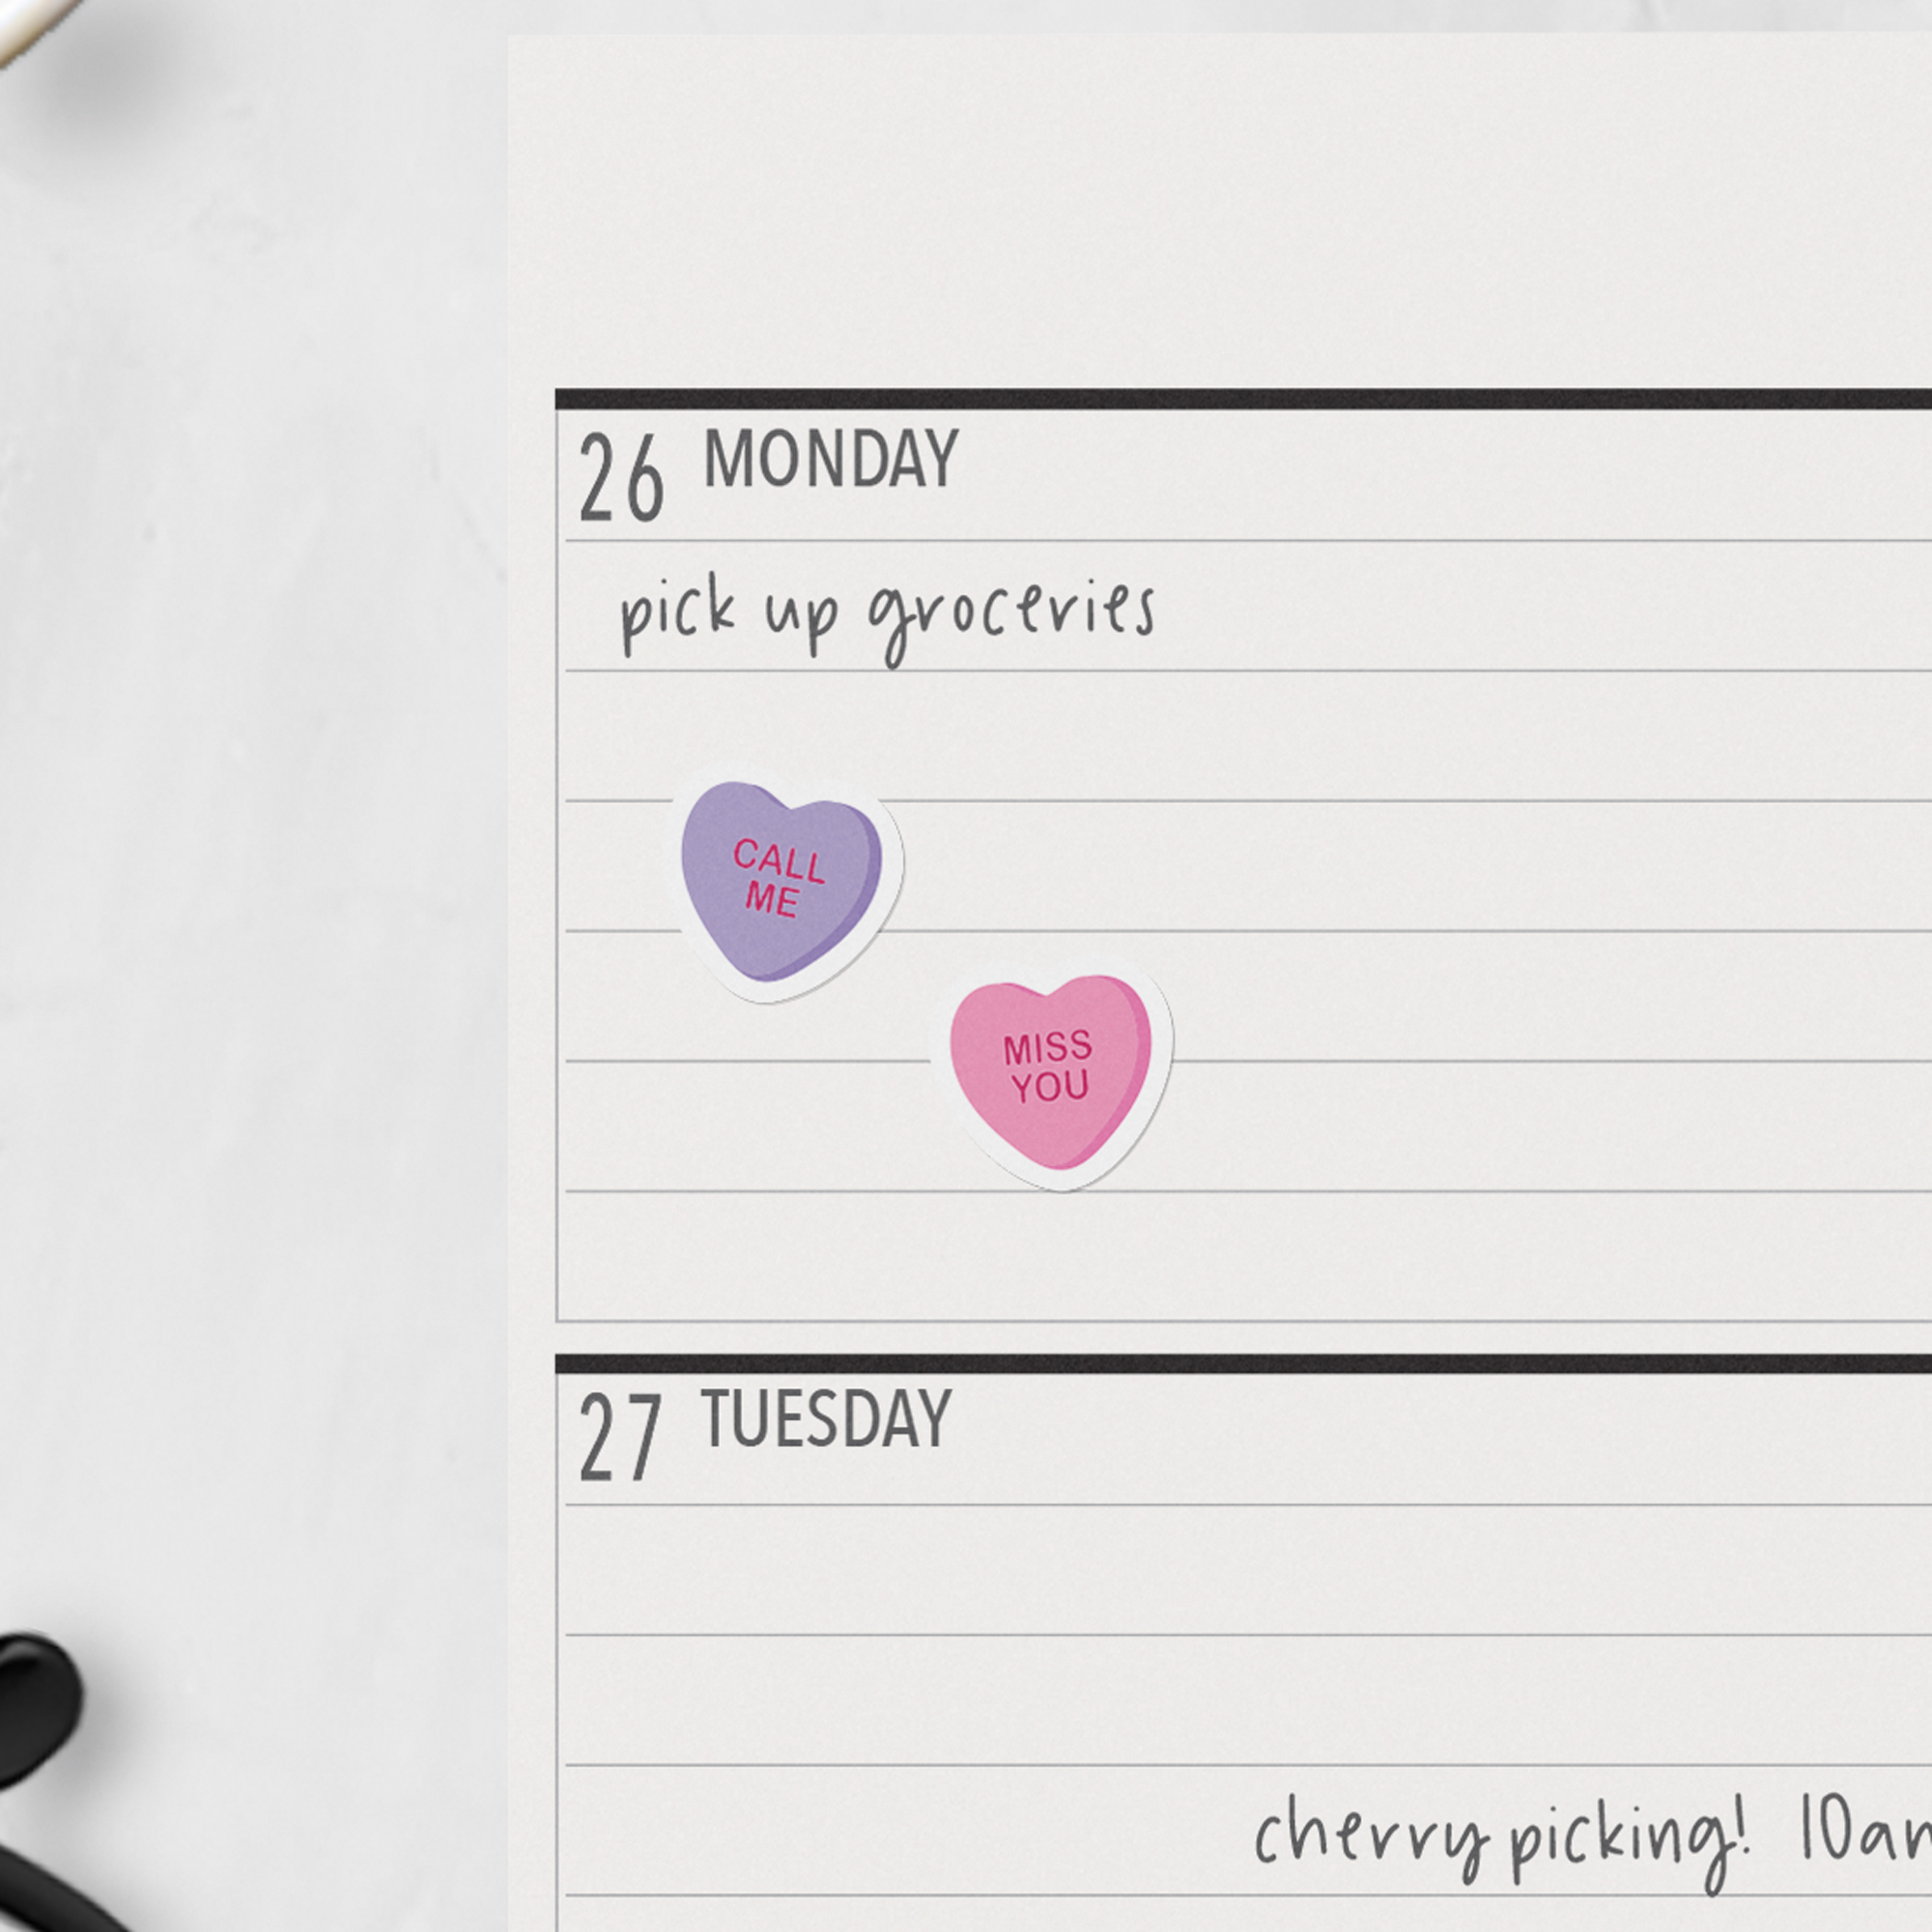 26 MONDAY
pick up groceries
CALL
ME
MISS
YOU
27 TUESDAY
cherry picking! 10am